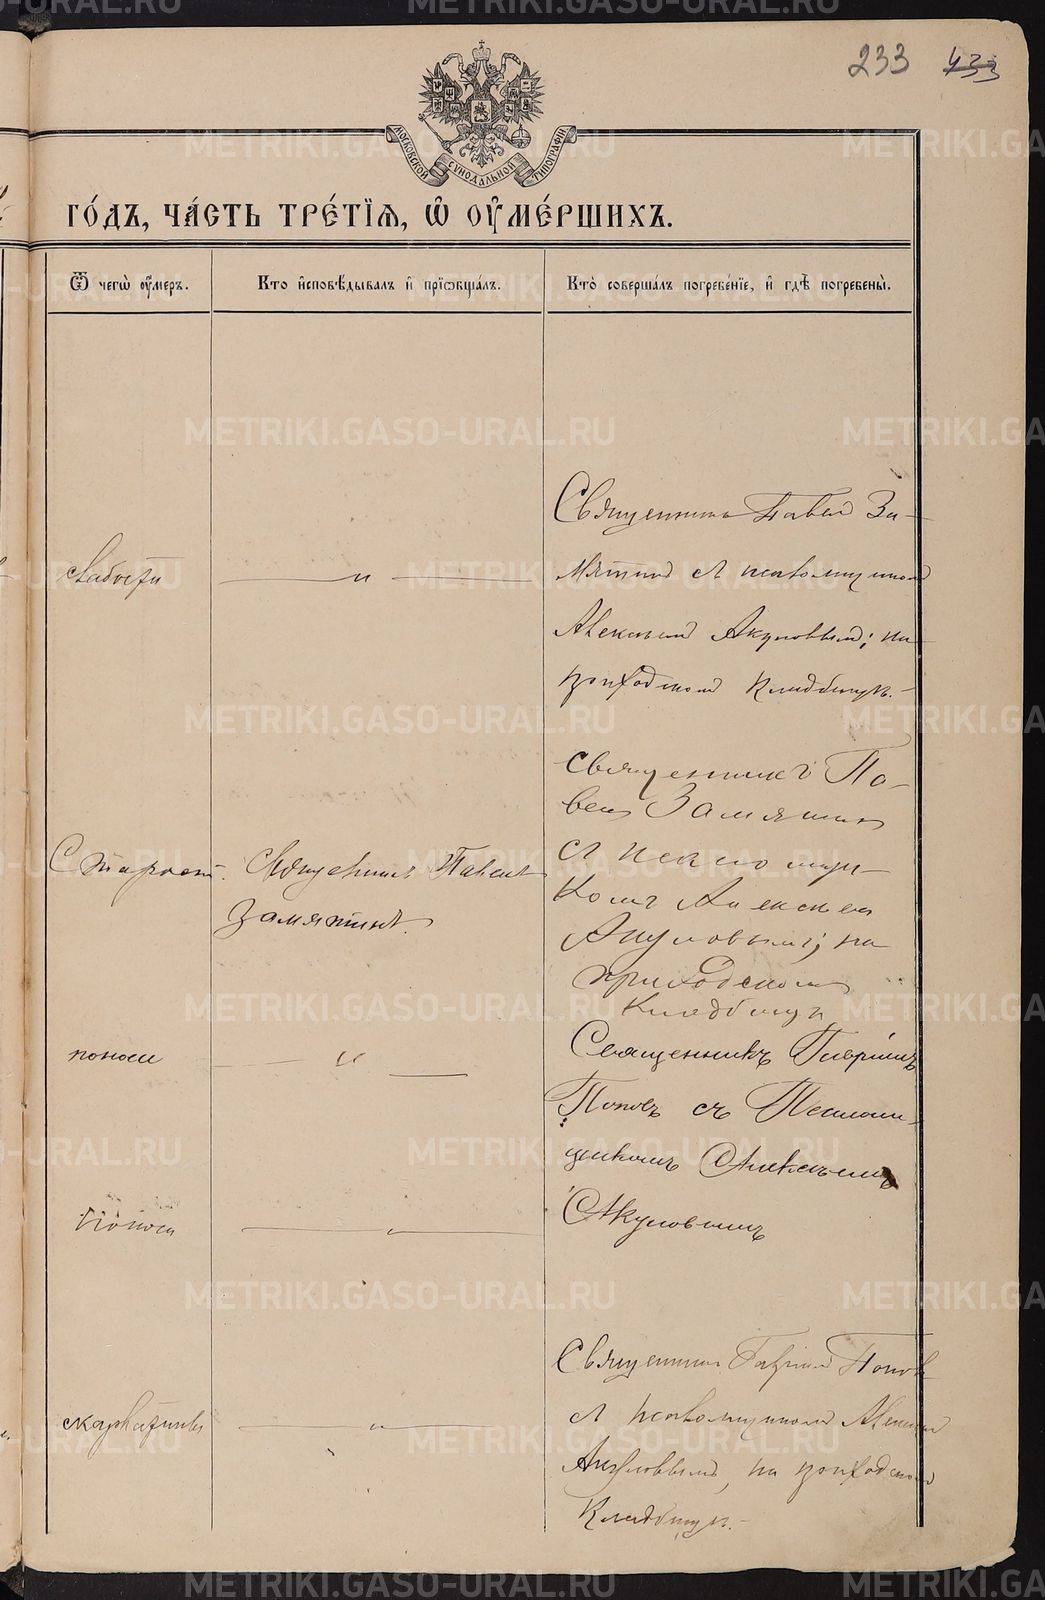 233 433
МОСКОВСКОЙ СѴНОДАЛЬНОЙ ТИПОГРАФІИ
ГО́ДЪ, ЧА́СТЬ ТРЕ́ТІѦ, Ѡ҆ ОУ҆МЕ́РШИХЪ.
Ѿ чегѡ̀ оу҆́меръ.
Кто̀ и҆сповѣ́дывалъ и҆ прїѡбща́лъ.
Кто̀ соверша́лъ погребе́нїе, и҆ гдѣ̀ погребены̀.
слабости
— „ —
Священникъ Павел За-
мятинъ съ псаломщиком
Алексѣемъ Акуловымъ; на
приходскомъ кладбищѣ.-
Старости.
Священникъ Павелъ
Замятинъ.
Священникъ Па-
велъ Замятин
съ псаломщи-
комъ Алексѣем
Акуловымъ; на
приходском
кладбищѣ
поноса
— „ —
Священникъ Гавріилъ
Поповъ съ Псалом-
щикомъ Алексѣемъ
Акуловымъ
Поноса
— „ —
скарлатины
— „ —
Священник Гавріил Попов
съ псаломщиком Алексѣем
Акуловымъ, на приходском
кладбищѣ.-
METRIKI.GASO-URAL.RU